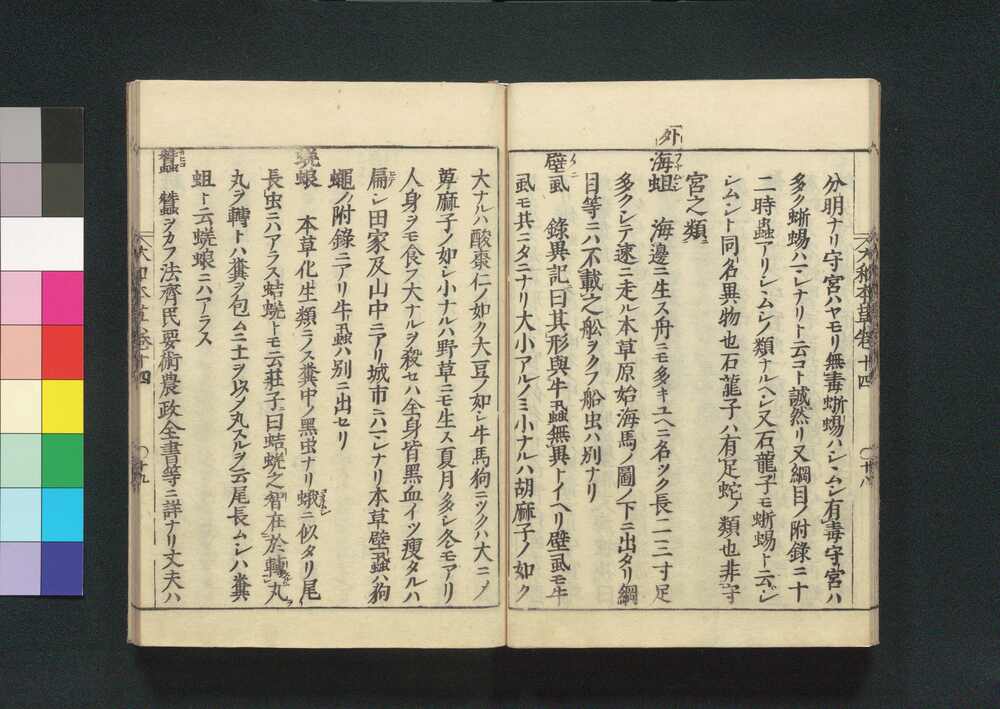 分明ナリ守宮ハヤモリ無毒蜥蜴ハシムシ有毒守宮ハ
多ク蜥蜴ハマレナリト云コト誠然リ又綱目ノ附錄ニ十
二時蟲アリシムシノ類ナルヘシ又石龍子モ蜥蜴ト云シ
シムシト同名異物也石龍子ハ有足蛇ノ類也非守
宮之類
外
海蛆 海邊ニ生ス舟ニモ多キユヘニ名ツク長二三寸足
多クシテ速ニ走ル本草原始海馬ノ圖ノ下ニ出タリ綱
目等ニハ不載之舩ヲクフ船虫ハ別ナリ
壁虱 錄異記曰其形與牛蝨無異トイヘリ壁虱モ牛
虱モ共ニタニナリ大小アルノミ小ナルハ胡麻子ノ如ク
大和本草卷十四
廿八
大ナルハ酸棗仁ノ如ク大豆ノ如シ牛馬狗ニツクハ大ニノ
萆麻子ノ如シ小ナルハ野草ニモ生ス夏月多シ冬モアリ
人身ヲモ食フ大ナルヲ殺セハ全身皆黑血イツ瘦タルハ
扁シ田家及山中ニアリ城市ニハマレナリ本草壁蝨ハ狗
蠅ノ附錄ニアリ牛蝨ハ別ニ出セリ
蜣蜋 本草化生類ニノス糞中ノ黑虫ナリ蛾ニ似タリ尾
長虫ニハアラス蛣蜣トモ云莊子曰蛣蜣之智在於轉丸
丸ヲ轉トハ糞ヲ包ムニ土ヲ以ノ丸スルヲ云尾長ムシハ糞
蛆ト云蜣蜋ニハアラス
蠶 蠶ヲカフ法齊民要術農政全書等ニ詳ナリ丈夫ハ
大和本草卷十四
廿九